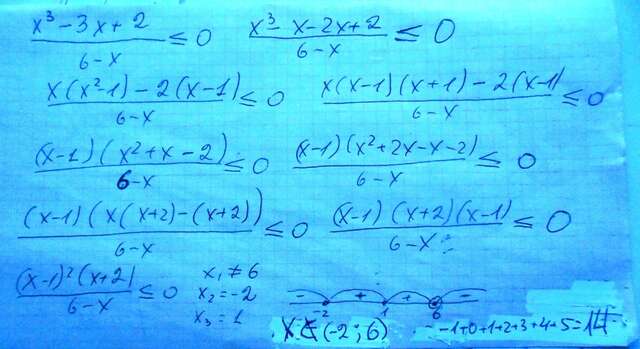 x³ - 3x + 2 / 6 - x ≤ 0    x³ - x - 2x + 2 / 6 - x ≤ 0
x(x² - 1) - 2(x - 1) / 6 - x ≤ 0    x(x - 1)(x + 1) - 2(x - 1) / 6 - x ≤ 0
(x - 1)(x² + x - 2) / 6 - x ≤ 0    (x - 1)(x² + 2x - x - 2) / 6 - x ≤ 0
(x - 1)(x(x + 2) - (x + 2)) / 6 - x ≤ 0    (x - 1)(x + 2)(x - 1) / 6 - x ≤ 0
(x - 1)²(x + 2) / 6 - x ≤ 0    x₁ ≠ 6
x₂ = -2
x₃ = 1
- + + -
-2 1 6
x ∈ (-2; 6)    -1+0+1+2+3+4+5=14